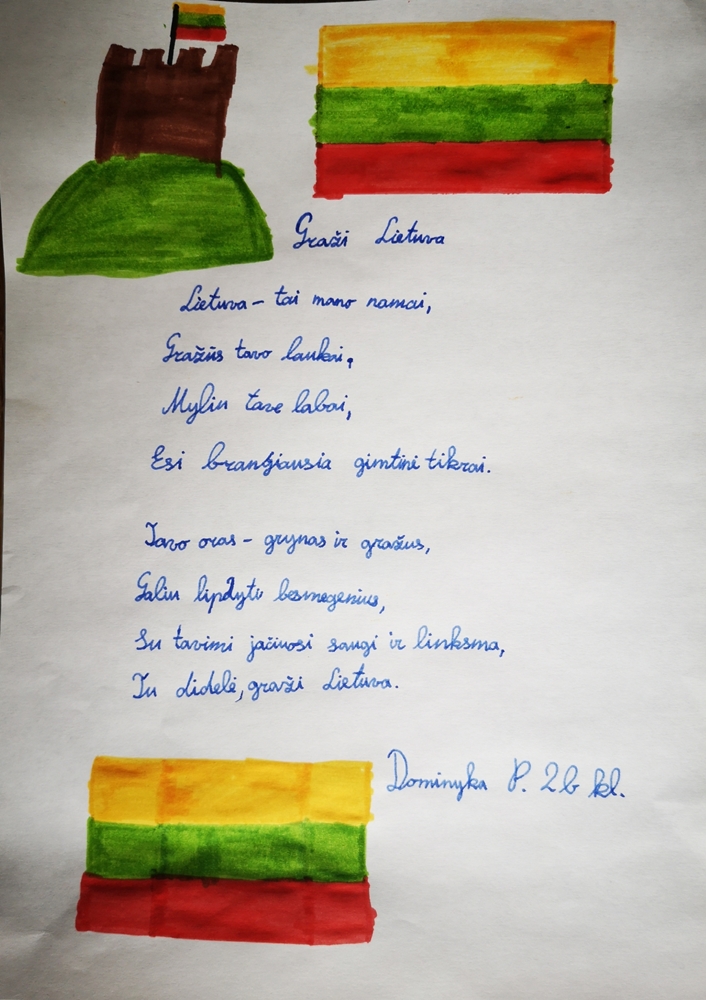 Graži Lietuva
Lietuva – tai mano namai,
Gražūs tavo laukai,
Myliu tave labai,
Esi brangiausia gimtinė tikrai.
Tavo oras – grynas ir gražus,
Galiu lipdyti besmegenius,
Su tavimi jaučiuosi saugi ir linksma,
Tu didelė, graži Lietuva.
Dominyka P. 2b kl.